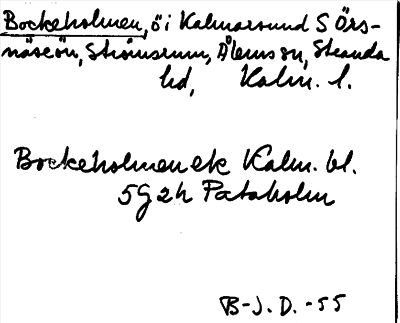 Bockeholmen, ö i Kalmarsund S Örs-
näseön, Strömsrum, Ålems sn, Stranda
hd, Kalm. l.
Bockeholmen ek Kalm. bl.
5G 2h Pataholm
B-J. D. -55